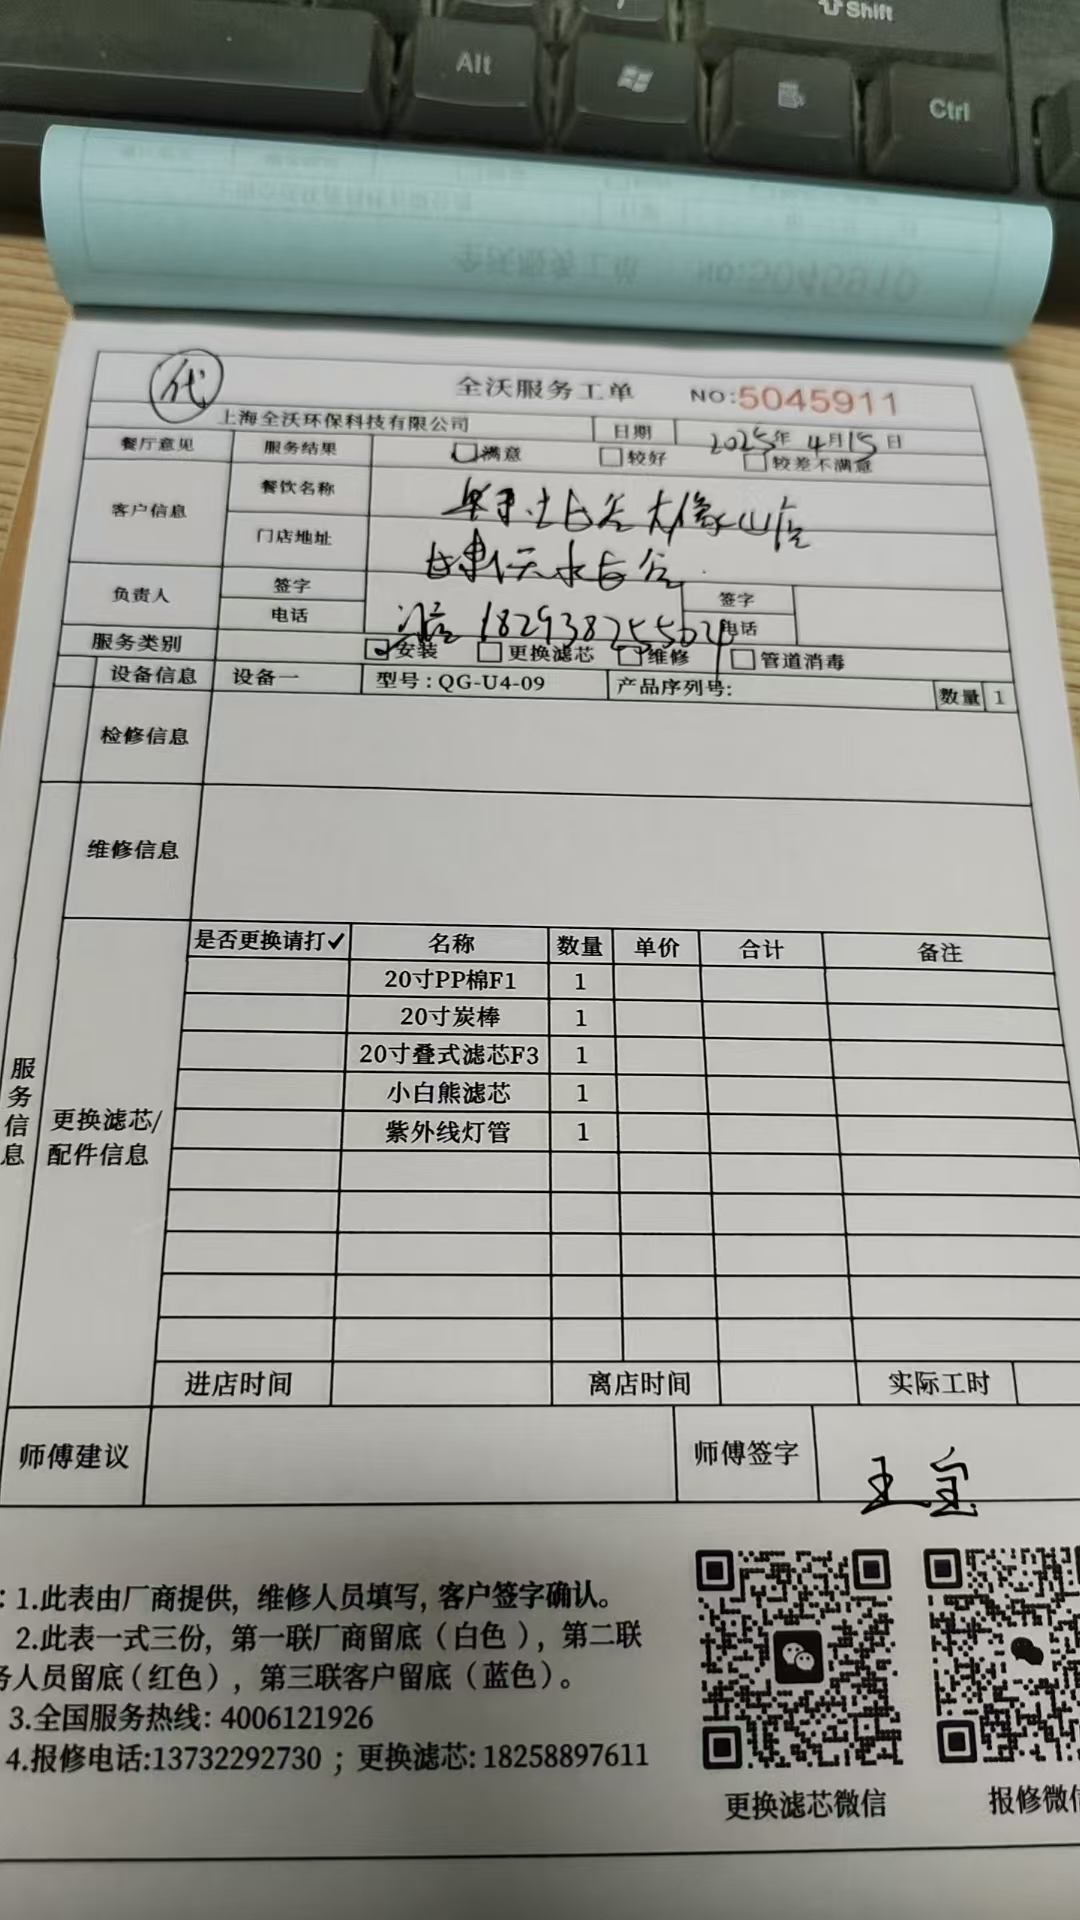 Shift
Alt
Ctrl
全沃服务工单 NO:5045910
代 全沃服务工单 NO:5045911
上海全沃环保科技有限公司 日期 2025年4月15日
餐厅意见 服务结果 满意 较好 较差不满意
客户信息 餐饮名称
门店地址 甘肃天水甘谷
负责人 签字 签字
电话 电话
服务类别 安装 更换滤芯 维修 管道消毒
设备信息 设备一 型号:QG-U4-09 产品序列号: 数量 1
检修信息
维修信息
服务信息
更换滤芯/配件信息
是否更换请打✓ 名称 数量 单价 合计 备注
20寸PP棉F1 1
20寸炭棒 1
20寸叠式滤芯F3 1
小白熊滤芯 1
紫外线灯管 1
进店时间 离店时间 实际工时
师傅建议 师傅签字 王宝
:1.此表由厂商提供,维修人员填写,客户签字确认。
2.此表一式三份,第一联厂商留底(白色),第二联
务人员留底(红色),第三联客户留底(蓝色)。
3.全国服务热线: 4006121926
4.报修电话:13732292730 ; 更换滤芯: 18258897611
更换滤芯微信 报修微信